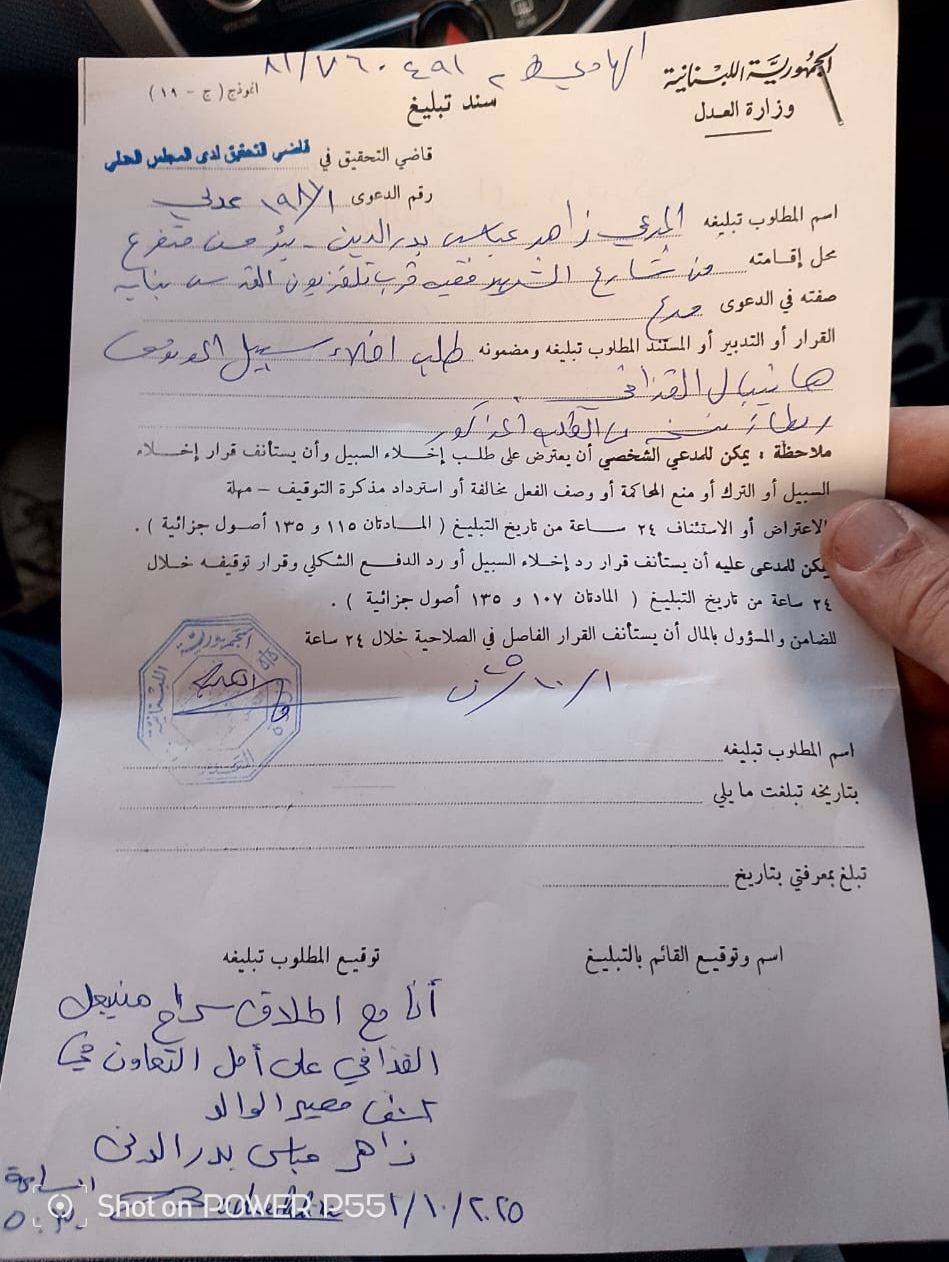 الهاتف ٨١/٧٦٠٤٩٨
الجمهورية اللبنانية
وزارة العدل
انموذج ( ج - ١٩ )
سند تبليغ
قاضي التحقيق في قاضي التحقيق لدى المجلس العدلي
رقم الدعوى ١/١٩٨ عدلي
اسم المطلوب تبليغه المدعي زاهر عباس بدر الدين
محل إقامته شارع الشهيد فقيه قرب تلفزيون القدس بناية
صفته في الدعوى مدع
القرار أو التدبير أو المستند المطلوب تبليغه ومضمونه طلب اخلاء سبيل الموقوف
هانيبال القذافي
ربطاً نسخة الطلب المذكور
ملاحظة : يمكن للمدعي الشخصي أن يعترض على طلب إخلاء السبيل وأن يستأنف قرار إخلاء
السبيل أو الترك أو منع المحاكمة أو وصف الفعل بمخالفة أو استرداد مذكرة التوقيف – مهلة
الاعتراض أو الاستئناف ٢٤ ساعة من تاريخ التبليغ ( المادتان ١١٥ و ١٣٥ أصول جزائية ) .
يمكن للمدعى عليه أن يستأنف قرار رد إخلاء السبيل أو رد الدفع الشكلي وقرار توقيفه خلال
٢٤ ساعة من تاريخ التبليغ ( المادتان ١٠٧ و ١٣٥ أصول جزائية ) .
للضامن والمسؤول بالمال أن يستأنف القرار الفاصل في الصلاحية خلال ٢٤ ساعة
الجمهورية اللبنانية
اسم المطلوب تبليغه
بتاريخه تبلغت ما يلي
تبلغ بمعرفتي بتاريخ
اسم وتوقيع القائم بالتبليغ
توقيع المطلوب تبليغه
أنا مع اطلاق سراح هنيبعل
القذافي على أمل التعاون في
كشف مصير الوالد
زاهر عباس بدر الدين
الساعة
١/١٠/٢٠٢٥
Shot on POWER P55